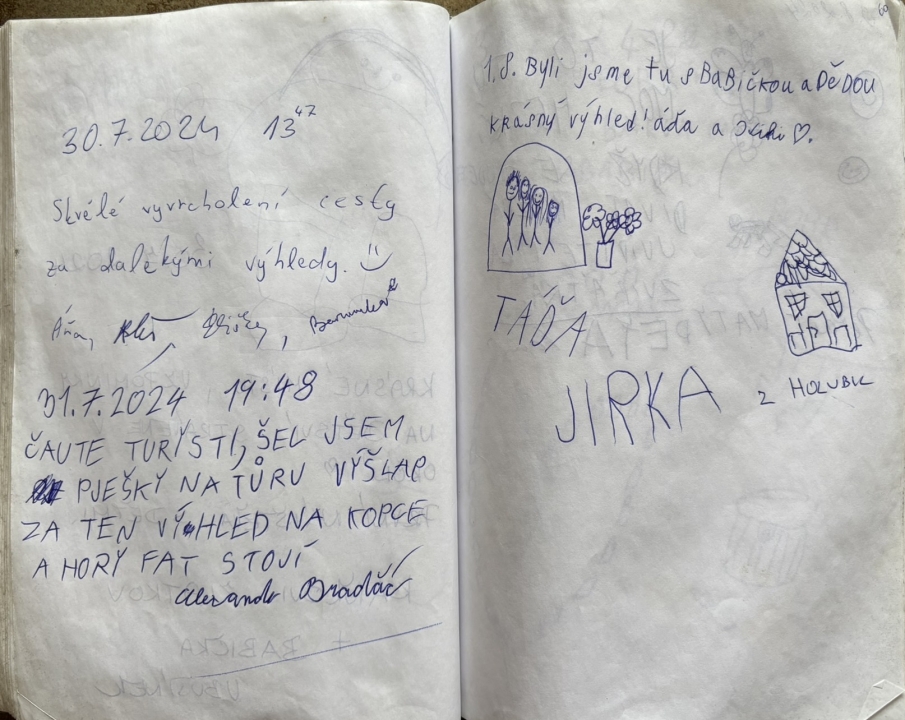 30.7.2024 13⁴⁷
Skvělé vyvrcholení cesty
za dalekými výhledy. :)
Áňa,
31.7.2024 19:48
ČAUTE TURÍSTI, ŠEL JSEM
PJEŠKÝ NA TŮRU VÝŠLAP
ZA TEN VÝHLED NA KOPCE
A HORY FAT STOJÍ
Alexandr Bradáč
60
1.8. Byli jsme tu s BaBičkou a DĚDOU
krásný výhled! áďa a ♡.
TÁĎA
JIRKA z HOLUBIC